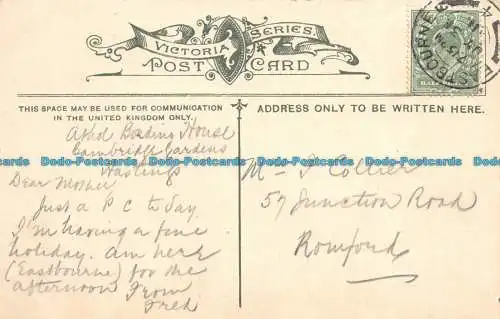 VICTORIA SERIES.
POST CARD
THIS SPACE MAY BE USED FOR COMMUNICATION
IN THE UNITED KINGDOM ONLY.
ADDRESS ONLY TO BE WRITTEN HERE.
Bording House
Cambridge Gardens
Hastings
Dear Mother
Just a P C to day
I'm having a fine
holiday. am here
(Eastbourne) for the
afternoon From
Fred
Mrs Collier
57 Junction Road
Romford
EASTBOURNE
Dodo-Postcards Dodo-Postcards Dodo-Postcards Dodo-Postcards Dodo-Postcards